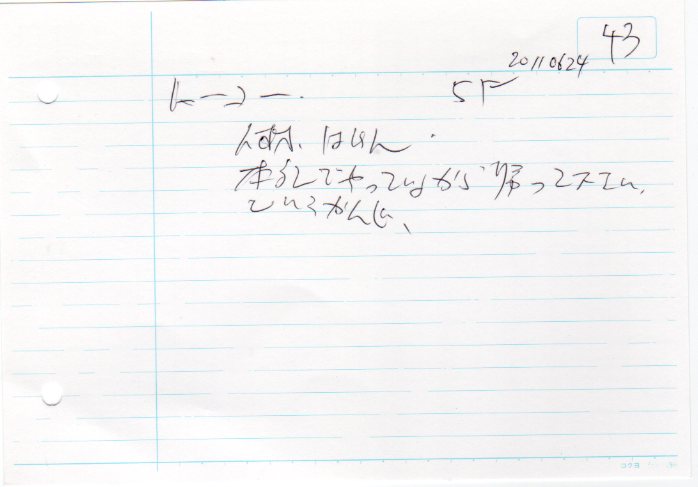 43
20110624
トーコー. 5F
人材. はけん.
本気でやっているから 帰って下さい、
というかんじ、
コクヨ